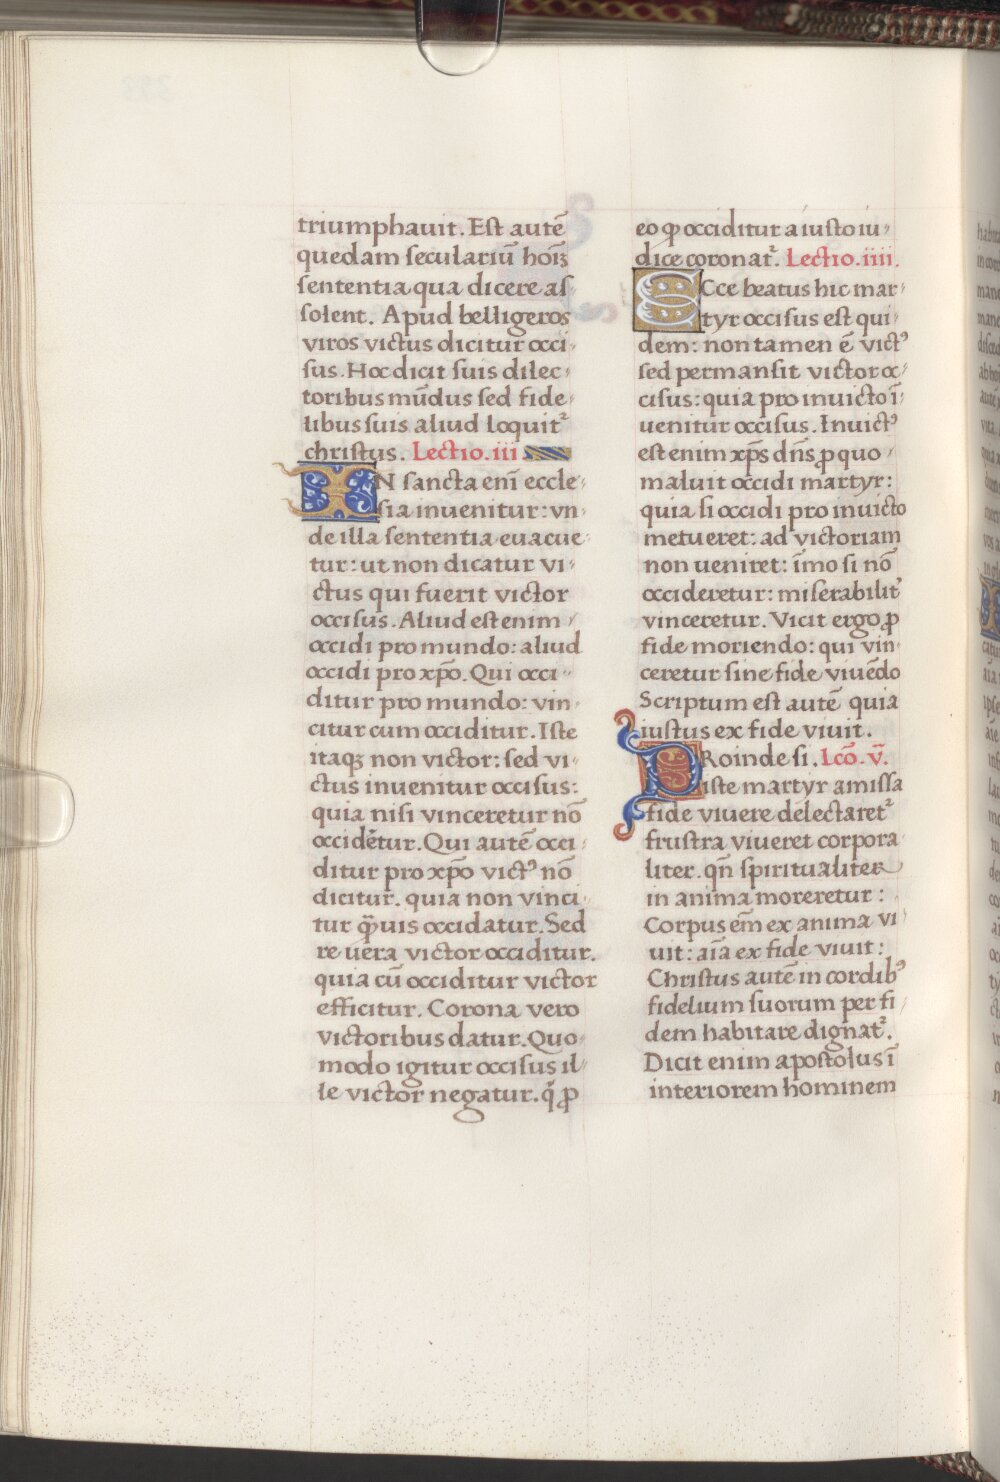 triumphauit. Est autē
quedam seculariū hoīꝫ
sententia qua dicere as⸗
solent. Apud belligeros
viros victus dicitur occi⸗
sus. Hoc dicit suis dilec⸗
toribus mūdus sed fide⸗
libus suis aliud loquitᷣ
christus. Lectio. iii
IN sancta enī eccle⸗
sia inuenitur: vn⸗
de illa sententia euacue⸗
tur: ut non dicatur vi⸗
ctus qui fuerit victor
occisus. Aliud est enim
occidi pro mundo: aliud
occidi pro xp̄o. Qui occi⸗
ditur pro mundo: vin⸗
citur cum occiditur. Iste
itaqꝫ non victor: sed vi⸗
ctus inuenitur occisus:
quia nisi vinceretur nō
occidētur. Qui autē occi⸗
ditur pro xp̄o victꝰ nō
dicitur. quia non vinci⸗
tur qᷓuis occidatur. Sed
re uera victor occiditur.
quia cū occiditur victor
efficitur. Corona vero
victoribus datur. Quo⸗
modo igitur occisus il⸗
le victor negatur. qͥ ꝓ
eo ꝙ occiditur a iusto iu⸗
dice coronatᷣ. Lectio. iiii.
ECce beatus hic mar⸗
tyr occisus est qui⸗
dem: non tamen ē victꝰ
sed permansit victor oc⸗
cisus: quia pro inuicto ī⸗
uenitur occisus. Inuictꝰ
est enim xp̄s dn̄s ꝓ quo
maluit occidi martyr:
quia si occidi pro inuicto
metueret: ad victoriam
non ueniret: īmo si nō
occideretur: miserabilit᷑
vinceretur. Vicit ergo ꝓ
fide moriendo: qui vin⸗
ceretur sine fide viuēdo
Scriptum est autē quia
iustus ex fide viuit.
PRoinde si. Lcō. v̄.
iste martyr amissa
fide viuere delectaretᷣ
frustra viueret corpora⸗
liter. qn̄ spiritualiter
in anima moreretur:
Corpus em̄ ex anima vi⸗
uit: aīa ex fide viuit:
Christus autē in cordibꝰ
fidelium suorum per fi⸗
dem habitare dignatᷣ.
Dicit enim apostolus ī
interiorem hominem